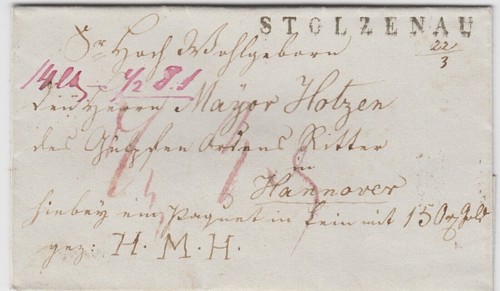 STOLZENAU
Sr Hoch Wohlgeborn
22/3
den Herrn Mayor Hotzen
des Guelphen Ordens Ritter
in
Hannover
hiebey ein Paquet in Lein mit 15
gez: H. M. H.